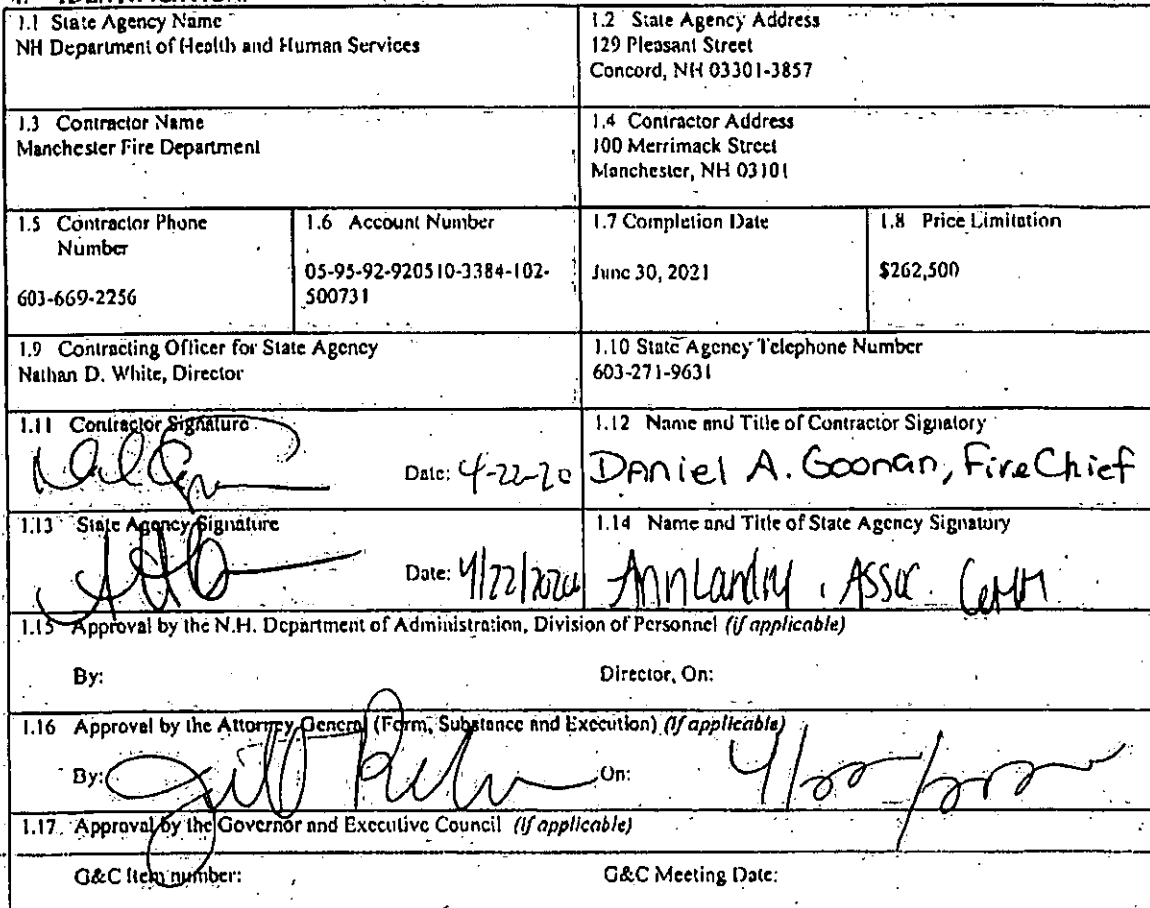 1.1 State Agency Name
NH Department of Health and Human Services
1.2 State Agency Address
129 Pleasant Street
Concord, NH 03301-3857
1.3 Contractor Name
Manchester Fire Department
1.4 Contractor Address
100 Merrimack Street
Manchester, NH 03101
1.5 Contractor Phone
Number
603-669-2256
1.6 Account Number
05-95-92-920510-3384-102-
500731
1.7 Completion Date
June 30, 2021
1.8 Price Limitation
$262,500
1.9 Contracting Officer for State Agency
Nathan D. White, Director
1.10 State Agency Telephone Number
603-271-9631
1.11 Contractor Signature
Date: 4-22-20
1.12 Name and Title of Contractor Signatory
Daniel A. Goonan, Fire Chief
1.13 State Agency Signature
Date: 4/22/2020
1.14 Name and Title of State Agency Signatory
Ann Landry, Assoc. Comm
1.15 Approval by the N.H. Department of Administration, Division of Personnel (if applicable)
By:
Director, On:
1.16 Approval by the Attorney General (Form, Substance and Execution) (if applicable)
By:
On:
1.17 Approval by the Governor and Executive Council (if applicable)
G&C Item number:
G&C Meeting Date: